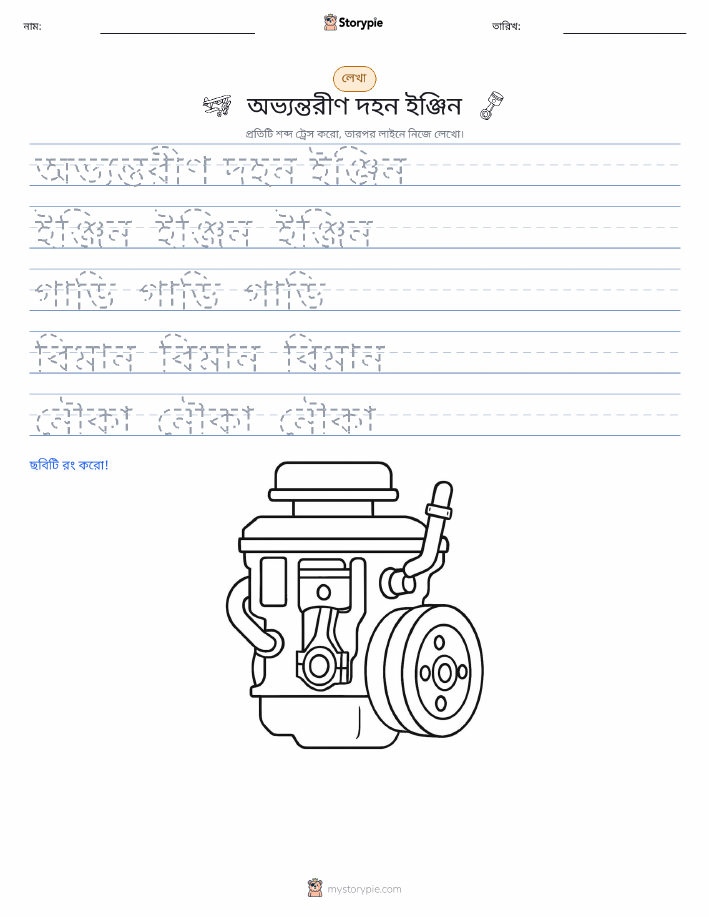 নাম:
Storypie
তারিখ:
লেখা
অভ্যন্তরীণ দহন ইঞ্জিন
প্রতিটি শব্দ ট্রেস করো, তারপর লাইনে নিজে লেখো।
অভ্যন্তরীণ দহন ইঞ্জিন
ইঞ্জিন ইঞ্জিন ইঞ্জিন
গাড়ি গাড়ি গাড়ি
বিমান বিমান বিমান
নৌকা নৌকা নৌকা
ছবিটি রং করো!
mystorypie.com